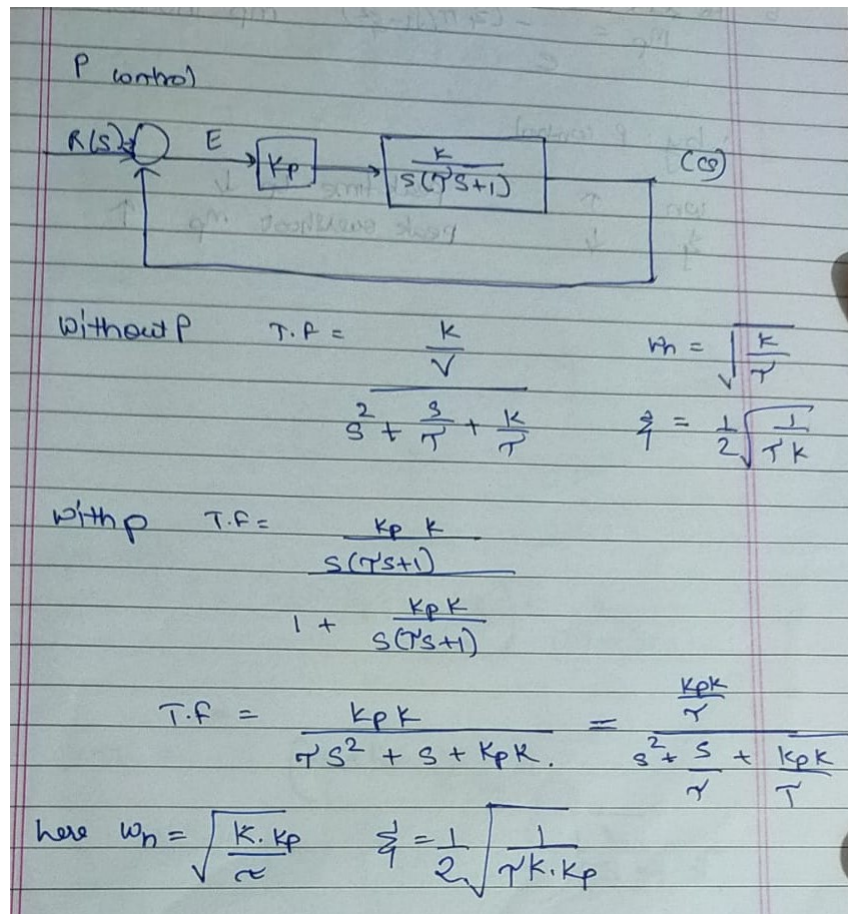 P control
R(s) E Kp K/(s(τs+1)) C(s)
Without P T.F = (K/τ)/(s² + s/τ + K/τ) ωn = √(K/τ)
ξ = 1/2 √(1/(τK))
With P T.F = (Kp K/(s(τs+1)))/(1 + Kp K/(s(τs+1)))
T.F = Kp K/(τs² + s + Kp K.) = (Kp K/τ)/(s² + s/τ + Kp K/τ)
here ωn = √(K.Kp/τ) ξ = 1/2 √(1/(τK.Kp))